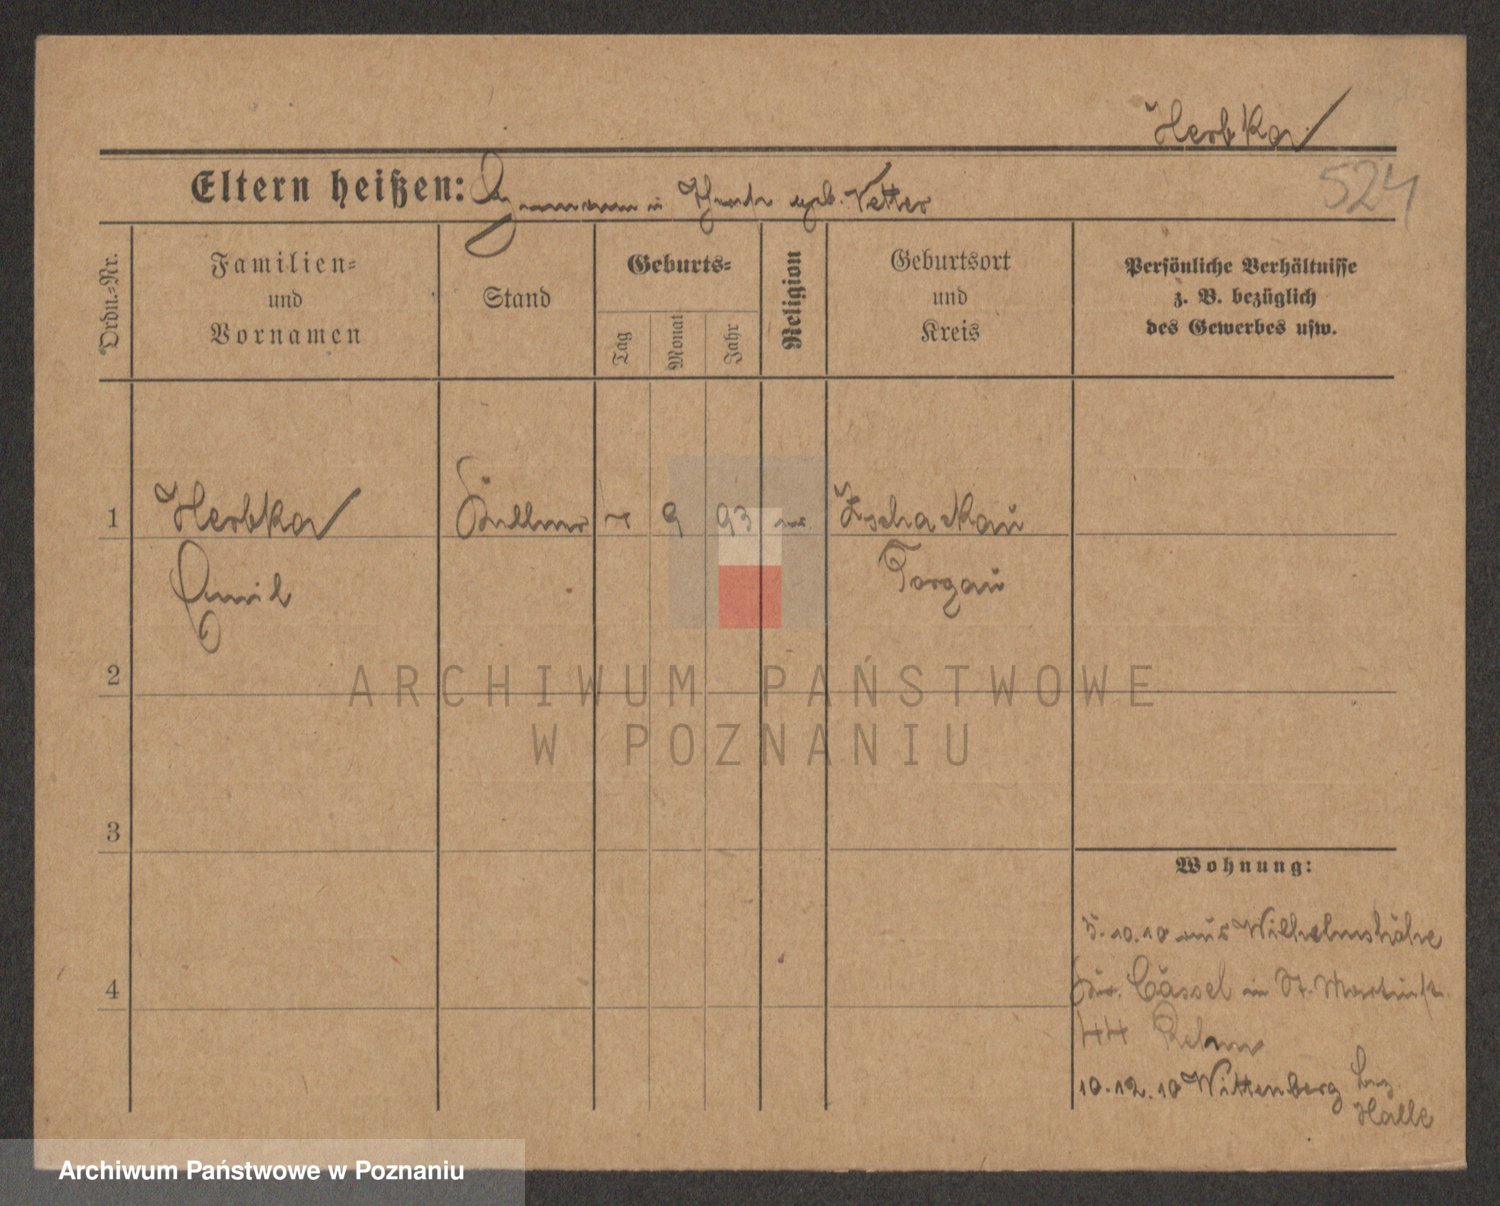 Herbka
524
Eltern heißen: Hermann u geb. Vetter
Ordn.-Nr.
Familien-
und
Vornamen
Stand
Geburts-
Tag
Monat
Jahr
Religion
Geburtsort
und
Kreis
Persönliche Verhältnisse
z. B. bezüglich
des Gewerbes usw.
1
Herbka
Kellner
9
93
Zschackau
Emil
Torgau
2
3
4
Wohnung:
5.10.10 aus Wilhelmshöhe
Cassel in St. Martinst.
44
10.12.10 Wittenberg Bez.
Halle
ARCHIWUM PAŃSTWOWE
W POZNANIU
Archiwum Państwowe w Poznaniu